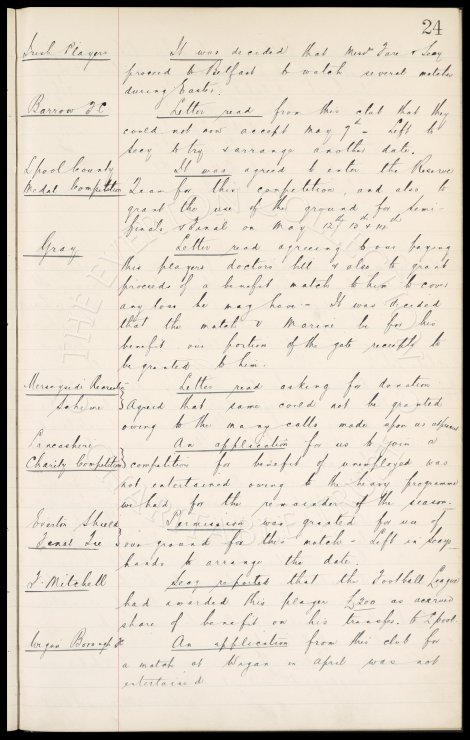 24
Irish Players It was decided that Messrs Fare & Secy
proceed to Belfast to watch several matches
during Easter.
Barrow FC Letter read from this club that they
could not now accept May 7th - Left to
Secy to try & arrange another date.
Lpool County It was agreed to enter the Reserve
Medal Competition Team for this competition, and also to
grant the use of the ground for semi-
finals & Final on May 12th
Gray Letter read agreeing to our paying
this players doctors bill & also to grant
proceeds of a benefit match to him to cover
any loss he may have - It was decided
that the match v Marine be for his
benefit our portion of the gate receipts to
be granted to him.
Merseyside Letter read asking for donation
Scheme Agreed that same could not be granted
owing to the many calls made upon us at present
Lancashire An application for us to join a
Charity Competition competition for benefit of unemployed was
not entertained owing to the heavy programme
we had for the remainder of the season.
Everton Shield Permission was granted for use of
Final Tie our ground for this match - Left in Secys
hands to arrange the date.
F. Mitchell Secy reported that the Football League
had awarded this player £200 as accrued
share of benefit on his transfer to Lpool.
Wigan Borough FC An application from this club for
a match at Wigan in April was not
entertained